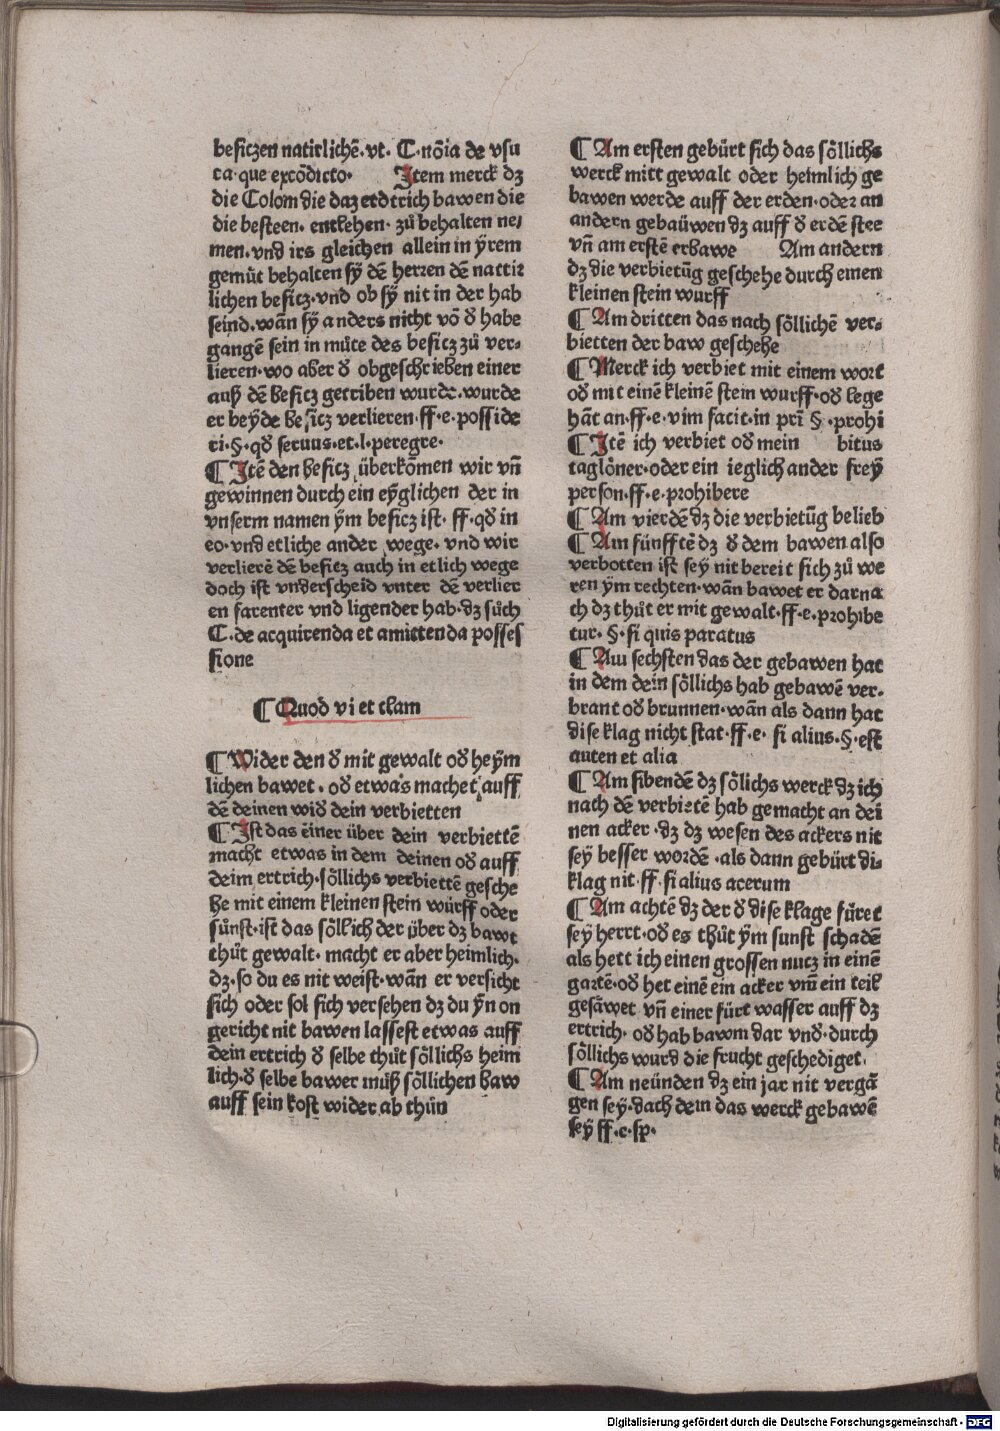 besiczen natirlichē·vt· C·nōia de vsu
ca·que excōdicto· Item merck dz
die Colom die daz erdtrich bawen die
die besteen· entlehen· zů behalten ne/
men·vnd irs gleichen allein in ÿrem
gemüt behalten sÿ dē herzen dē nattir
lichen besicz·vnd ob sÿ nit in der hab
seind·wān sÿ anders nicht vō d̕ habe
gangē sein in můte des besicz zů ver-
lieren·wo aber d̕ obgeschrieben einer
auß dē besicz getriben wurde·wurde
er beÿde besicz verlieren·ff·e·posside
ri·§·qd̕ seruus·et·l·peregre·
¶ Itē den besicz überkōmen wir vn̄
gewinnen durch ein eÿglichen der in
vnserm namen ÿm besicz ist· ff·qd̕ in
eo·vnd etliche ander wege· vnd wir
verlierē dē besicz auch in etlich wege
doch ist vnderscheid vnter dē verlier
en farenter vnd ligender hab·dz sůch
C·de acquirenda et amittenda posses
sione
¶ Quod vi et clam
¶ Wider den d̕ mit gewalt od̕ heÿm
lichen bawet · od̕ etwas machet auff
dē deinen wid̕ dein verbietten
¶ Ist das einer über dein verbiettē
macht etwas in dem deinen od̕ auff
deim ertrich·söllichs verbiettē gesche
he mit einem kleinen stein würff oder
sünst·ist das söllich der über dz bawt
thüt gewalt· macht er aber heimlich·
dz·so du es nit weist·wān er versicht
sich oder sol sich versehen dz du ÿn on
gericht nit bawen lassest etwas auff
dein ertrich d̕ selbe thüt söllichs heim
lich·d̕ selbe bawer můß söllichen baw
auff sein kost wider ab thün
¶ Am ersten gebürt sich das söllichs
werck mitt gewalt oder heimlich ge
bawen werde auff der erden·oder an
andern gebaüwen dz auff d̕ erdē stee
vn̄ am erstē erbawe Am andern
dz die verbietūg geschehe durch einen
kleinen stein wurff
¶ Am dritten das nach söllichē ver-
bietten der baw geschehe
¶ Merck ich verbiet mit einem wort
od̕ mit einē kleinē stein wurff·od̕ lege
hāt an·ff·e·vim facit·in pri͂ §·prohi
¶ Itē ich verbiet od̕ mein bitus
taglöner·oder ein ieglich ander freÿ
person·ff·e·prohibere
¶ Am vierdē dz die verbietūg belieb
¶ Am fünfftē dz d̕ dem bawen also
verbotten ist seÿ nit bereit sich zů we
ren ÿm rechten·wān bawet er darna
ch dz thüt er mit gewalt·ff·e·prohibe
tur·§·si quis paratus
¶ Am sechsten das der gebawen hat
in dem dein söllichs hab gebawē ver-
brant od̕ brunnen·wān als dann hat
dise klag nicht stat·ff·e· si alius·§·est
autem et alia
¶ Am sibendē dz sölichs werck dz ich
nach dē verbietē hab gemacht an dei
nen acker·dz dz wesen des ackers nit
seÿ besser wordē·als dann gebürt di-
klag nit·ff·si alius acerum
¶ Am achtē dz der d̕ dise klage füret
seÿ herrt·od̕ es thüt ÿm sunst schadē
als hett ich einen grossen nucz in einē
gartē·od̕ het einē ein acker vm̄ ein teil
gesäwet vn̄ einer fürt wasser auff dz
ertrich· od̕ hab bawm dar vnd̕·durch
söllichs wurd die frucht geschediget·
¶ Am neünden dz ein jar nit vergā
gen seÿ·dach dem das werck gebawē
seÿ ff·e·sp·
Digitalisierung gefördert durch die Deutsche Forschungsgemeinschaft - DFG